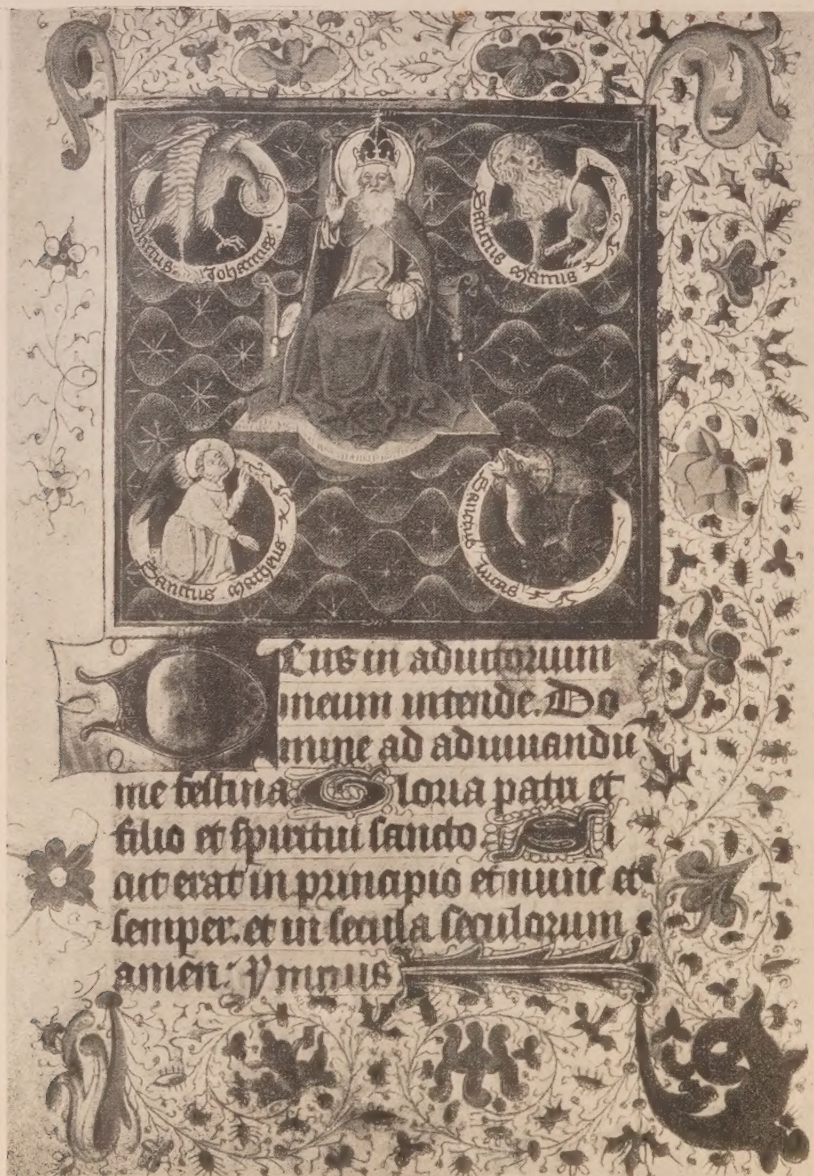 Sanctus Johannes
Sanctus
Sanctus Matheus
Sanctus lucas
Deus in adiutorium
meum intende. Do
mine ad adiuuandu
me festina. Gloria patri et
filio et spiritui sancto. Si
cut erat in principio et nunc et
semper. et in secula seculorum
amen. Ymnus